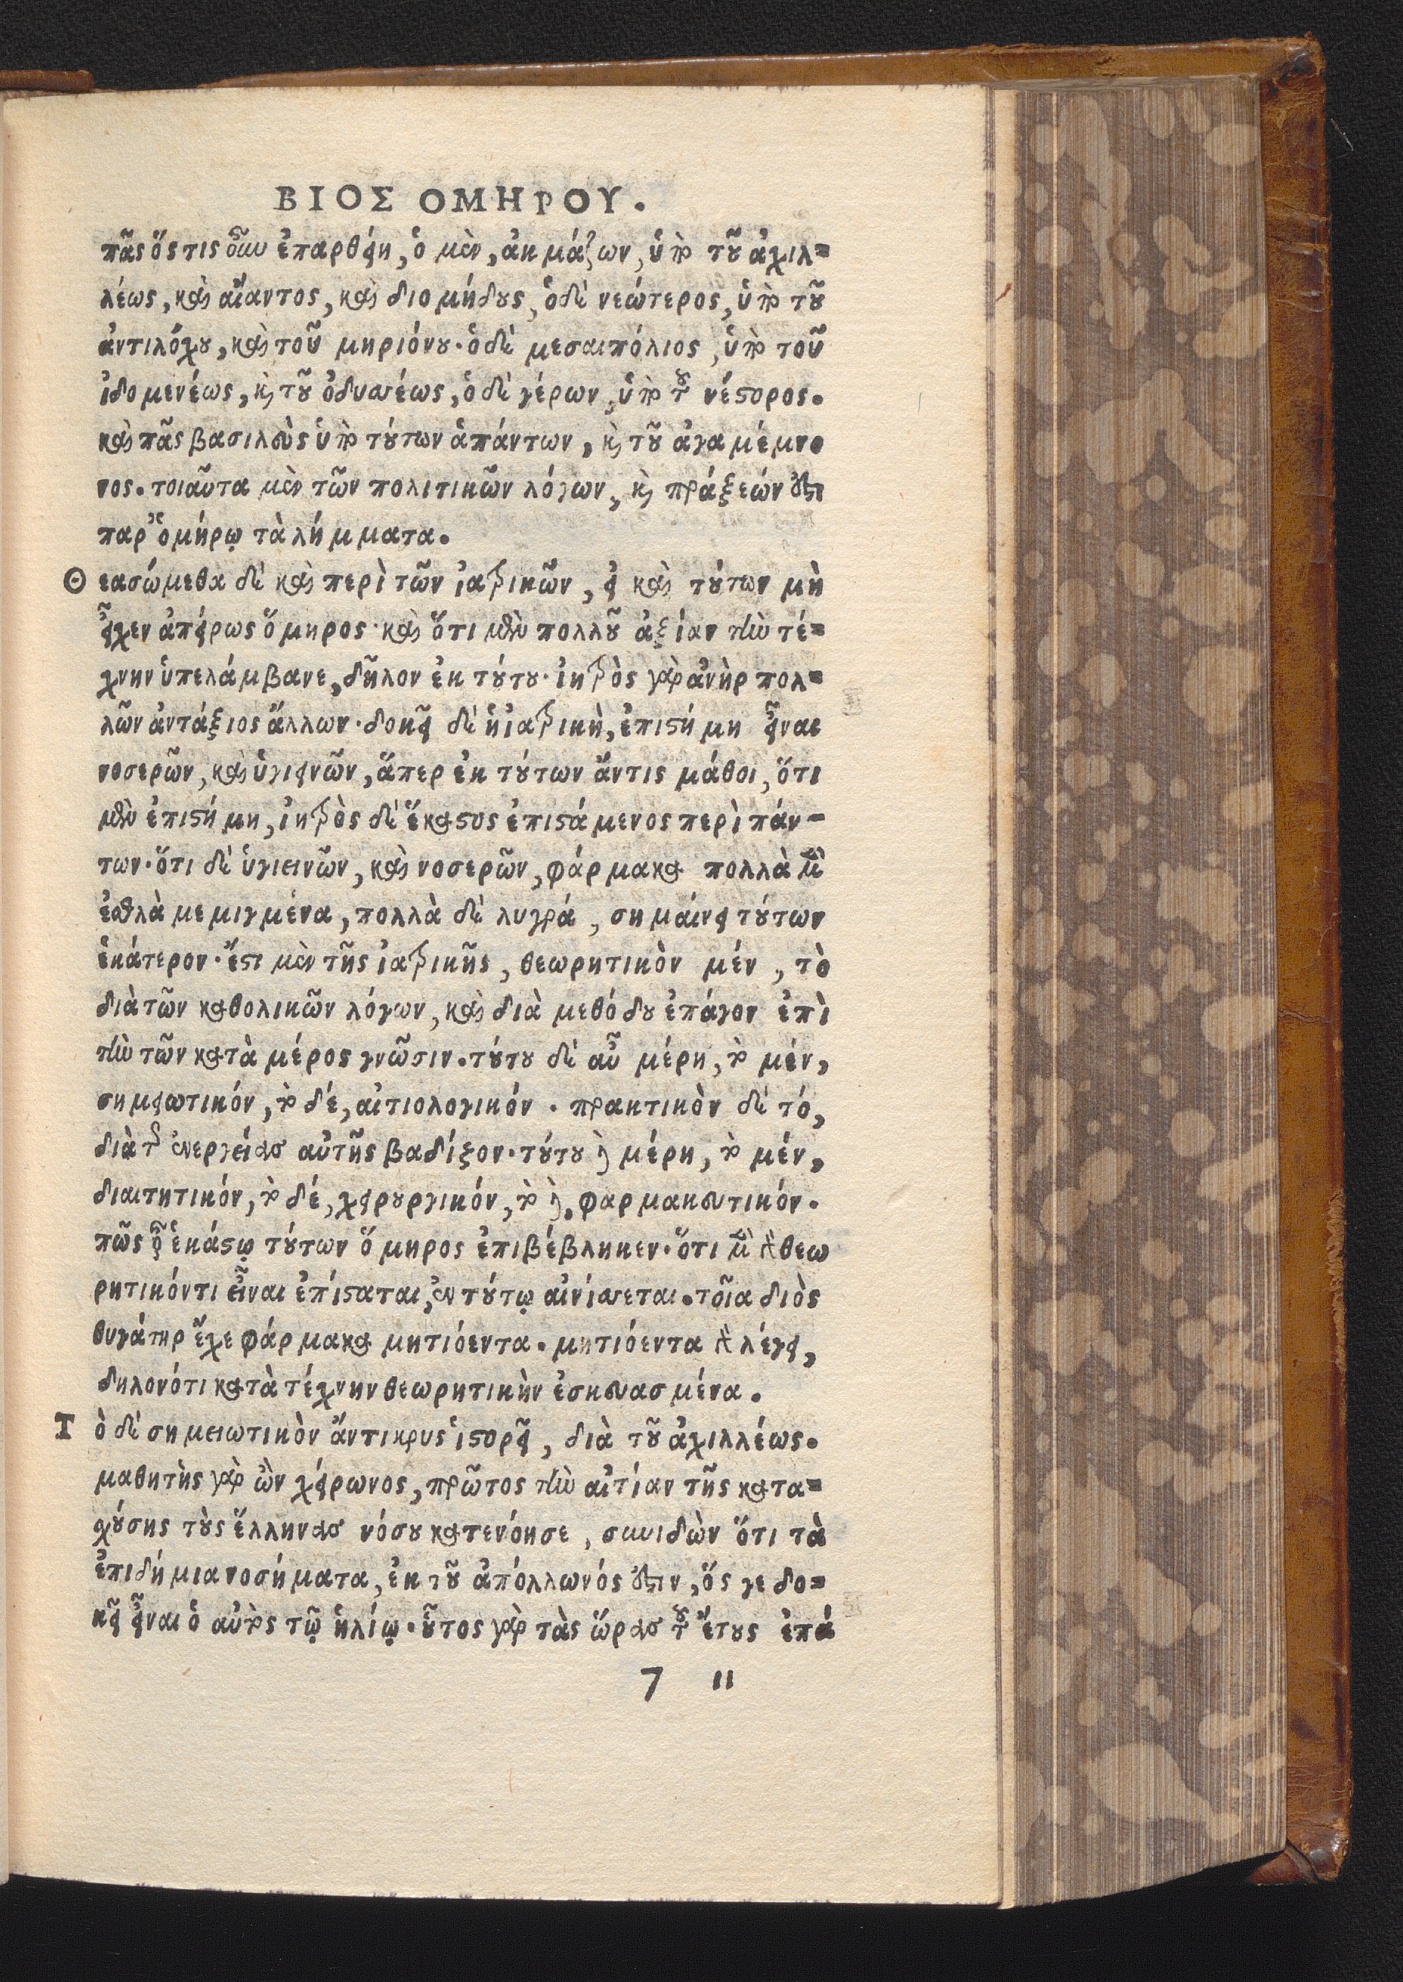 ΒΙΟΣ ΟΜΗΡΟΥ.
πᾶς ὅστις οὖν ἐπαρθείη, ὁ μὲν, ἀκμάζων, ὑπὸ τοῦ ἀχιλ=
λέως, καὶ αἴαντος, καὶ διομήδους, ὁ δὲ νεώτερος, ὑπὸ τοῦ
ἀντιλόχου, καὶ τοῦ μηριόνου· ὁ δὲ μεσαιπόλιος, ὑπὸ τοῦ
ἰδομενέως, καὶ τοῦ ὀδυσσέως, ὁ δὲ γέρων, ὑπὸ τοῦ νέστορος.
καὶ πᾶς βασιλεὺς ὑπὸ τούτων ἁπάντων, καὶ τοῦ ἀγαμέμνο
νος. τοιαῦτα μὲν τῶν πολιτικῶν λόγων, καὶ πράξεών ἐστι
παρ' ὁμήρῳ τὰ λήμματα.
Θεασώμεθα δὲ καὶ περὶ τῶν ἰατρικῶν, εἰ καὶ τούτων μὴ
εἶχεν ἀπείρως ὅμηρος· καὶ ὅτι μὲν πολλοῦ ἀξίαν τὴν τέ=
χνην ὑπελάμβανε, δῆλον ἐκ τούτου· ἰητρὸς γὰρ ἀνὴρ πολ=
λῶν ἀντάξιος ἄλλων· δοκεῖ δὲ ἡ ἰατρικὴ, ἐπιστήμη εἶναι
νοσερῶν, καὶ ὑγιεινῶν, ἅπερ ἐκ τούτων ἄν τις μάθοι, ὅτι
μὲν ἐπιστήμη, ἰητρὸς δὲ ἕκαστος ἐπιστάμενος περὶ πάν-
των· ὅτι δὲ ὑγιεινῶν, καὶ νοσερῶν, φάρμακα πολλὰ μὲν
ἐσθλὰ μεμιγμένα, πολλὰ δὲ λυγρά, σημαίνει τούτων
ἑκάτερον· ἔστι μὲν τῆς ἰατρικῆς, θεωρητικὸν μέν, τὸ
διὰ τῶν καθολικῶν λόγων, καὶ διὰ μεθόδου ἐπάγον ἐπὶ
τὴν τῶν κατὰ μέρος γνῶσιν. τούτου δὲ αὖ μέρη, τὸ μέν,
σημειωτικόν, τὸ δέ, αἰτιολογικόν. πρακτικὸν δὲ τό,
διὰ τῆς ἐνεργείας αὐτῆς βαδίζον· τούτου δὲ μέρη, τὸ μέν,
διαιτητικόν, τὸ δέ, χειρουργικόν, τὸ δὲ, φαρμακευτικόν.
πῶς οὖν ἑκάστῳ τούτων ὅμηρος ἐπιβέβληκεν· ὅτι μὲν γὰρ θεω
ρητικόν τι εἶναι ἐπίσταται, ἐν τούτῳ αἰνίσσεται. τοῖα διὸς
θυγάτηρ ἔχε φάρμακα μητιόεντα. μητιόεντα γὰρ λέγει,
δηλονότι κατὰ τέχνην θεωρητικὴν ἐσκευασμένα.
Τὸ δὲ σημειωτικὸν ἄντικρυς ἱστορεῖ, διὰ τοῦ ἀχιλλέως.
μαθητὴς γὰρ ὢν χείρωνος, πρῶτος τὴν αἰτίαν τῆς κατα=
χούσης τοὺς ἕλληνας νόσου κατενόησε, συνιδὼν ὅτι τὰ
ἐπιδήμια νοσήματα, ἐκ τοῦ ἀπόλλωνός ἐστιν, ὅς γε δο=
κεῖ εἶναι ὁ αὐτὸς τῷ ἡλίῳ. οὗτος γὰρ τὰς ὥρας τοῦ ἔτους ἐπά
7 ii